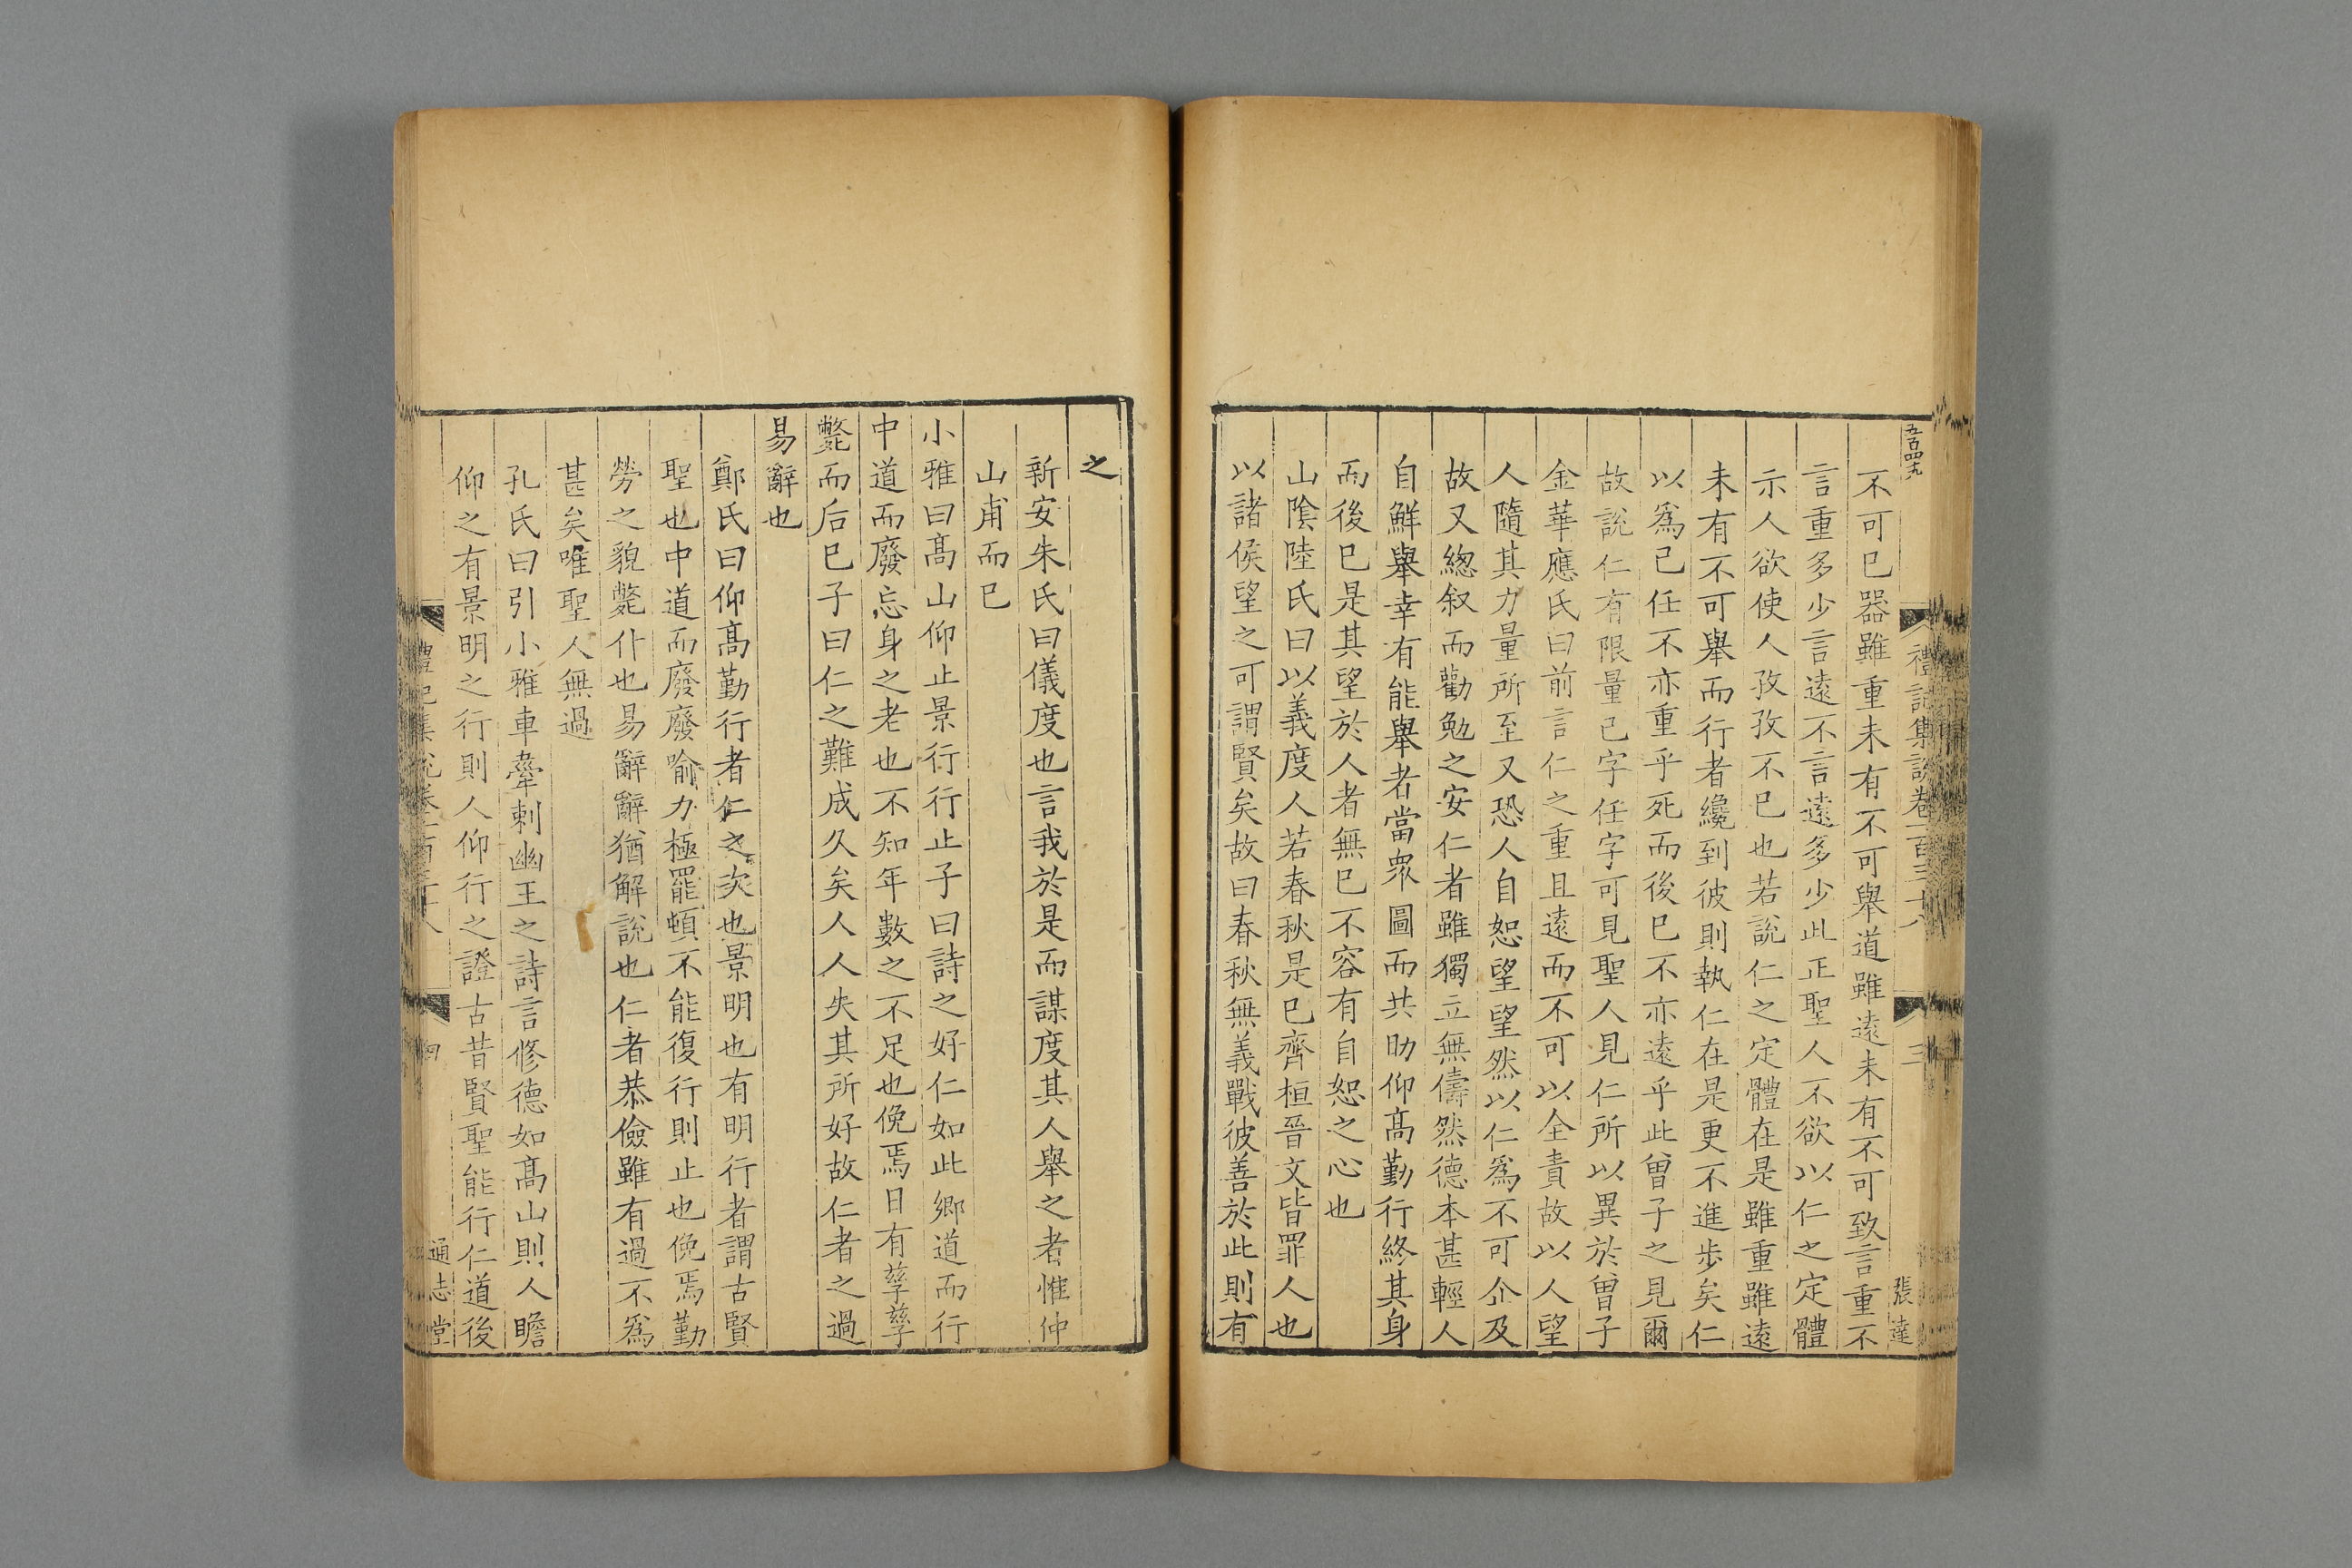 五百四九
禮記集說卷一百三十八
三
張達
不可已器雖重未有不可舉道雖遠未有不可致言重不
言重多少言遠不言遠多少此正聖人不欲以仁之定體
示人欲使人孜孜不已也若說仁之定體在是雖重雖遠
未有不可舉而行者纔到彼則執仁在是更不進步矣仁
以爲己任不亦重乎死而後已不亦遠乎此曾子之見爾
故說仁有限量己字任字可見聖人見仁所以異於曾子
金華應氏曰前言仁之重且遠而不可以全責故以人望
人隨其力量所至又恐人自恕望望然以仁爲不可企及
故又緫叙而勸勉之安仁者雖獨立無儔然德本甚輕人
自鮮舉幸有能舉者當衆圖而共助仰髙勤行終其身
而後已是其望於人者無已不容有自恕之心也
山隂陸氏曰以義度人若春秋是已齊桓晉文皆罪人也
以諸侯望之可謂賢矣故曰春秋無義戰彼善於此則有
之
新安朱氏曰儀度也言我於是而謀度其人舉之者惟仲
山甫而已
小雅曰髙山仰止景行行止子曰詩之好仁如此鄉道而行
中道而廢忘身之老也不知年數之不足也俛焉日有孳孳
斃而后已子曰仁之難成久矣人人失其所好故仁者之過
易辭也
鄭氏曰仰髙勤行者仁之次也景明也有明行者謂古賢
聖也中道而廢廢喻力極罷頓不能復行則止也俛焉勤
勞之貌斃仆也易辭辭猶解說也仁者恭儉雖有過不爲
甚矣唯聖人無過
孔氏曰引小雅車舝刺幽王之詩言修德如髙山則人瞻
仰之有景明之行則人仰行之證古昔賢聖能行仁道後
禮記集說卷一百三十八
四
通志堂